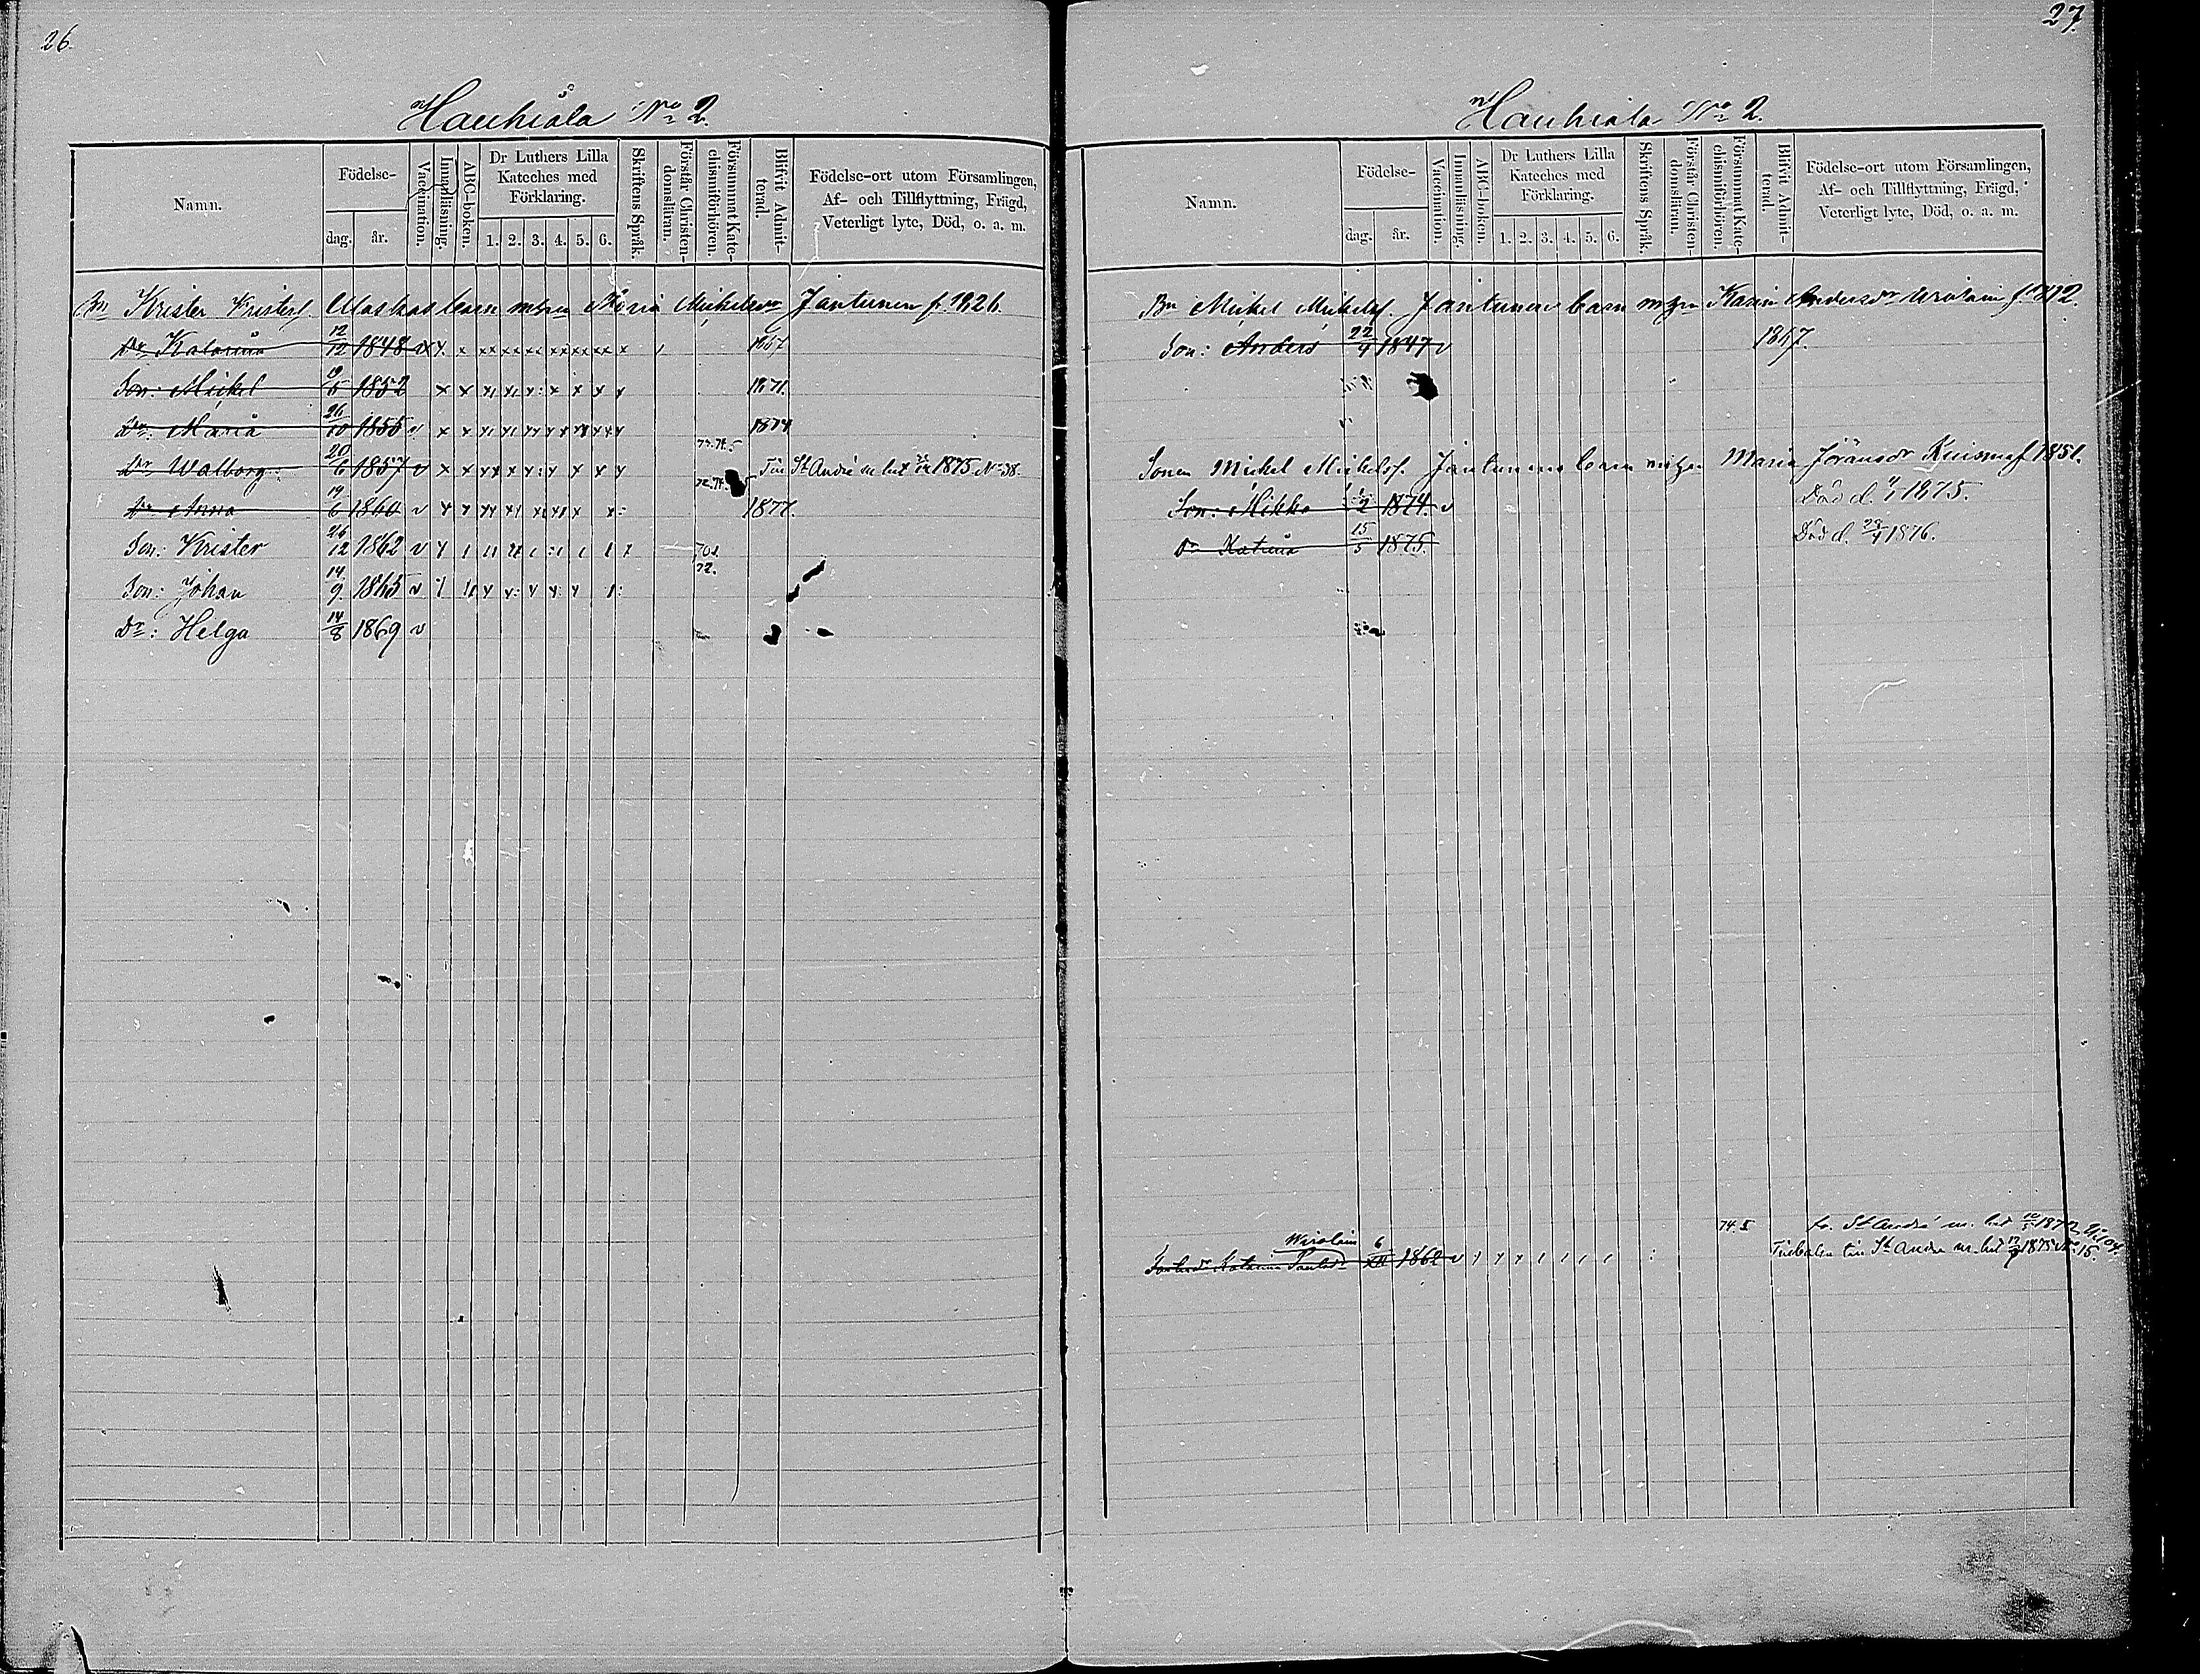 26.
Hauhiala No 2.
Namn.
Födelse-
dag. år.
Vaccination.
Innanläsning.
ABC-boken.
Dr Luthers Lilla Kateches med Förklaring.
1. 2. 3. 4. 5. 6.
Skriftens Språk.
Förstår Christendomsläran.
Försummat Katechismiförhören.
Blifvit Admitterad.
Födelse-ort utom Församlingen,
Af- och Tillflyttning, Frägd,
Veterligt lyte, Död, o. a. m.
Krister Kristersf. barn Maria Michelsdr Jantunen f. 1826.
Dr Katarina 12/12 1848 1867
Son: Mickel 1852 1871.
Dr: Maria 26/10 1855 v 1874
Dr Walborg: 20/6 1857 v St André m. bet. 1875 No 38.
Dr Anna 19/6 1860 v 1877.
Son: Krister 26/12 1862 v
Son: Johan 14/9 1865 v 72.
Dr: Helga 14/8 1869 v
27.
Hauhiala No 2.
Namn.
Födelse-
dag. år.
Vaccination.
Innanläsning.
ABC-boken.
Dr Luthers Lilla Kateches med Förklaring.
1. 2. 3. 4. 5. 6.
Skriftens Språk.
Förstår Christendomsläran.
Försummat Katechismiförhören.
Blifvit Admitterad.
Födelse-ort utom Församlingen,
Af- och Tillflyttning, Frägd,
Veterligt lyte, Död, o. a. m.
Bn Mickel Mickelsf. Jantunen barn Karin Andersdr Wirolain
Son: Anders 22/4 1847 v 1867.
Sonen Mickel Mickelsf. Jantunens barn Maria Jöransdr Kuisma f 1851.
Son: Mikko 1874. v Död d. 1875.
Dr Katrina 15/5 1875. Död d. 1876.
Wirolain
74. fr. St André m. bet 1872
Katarina Paulsdr 6/XII 1862 v Tillbaka till St Andre m. bet 1875 No 15.